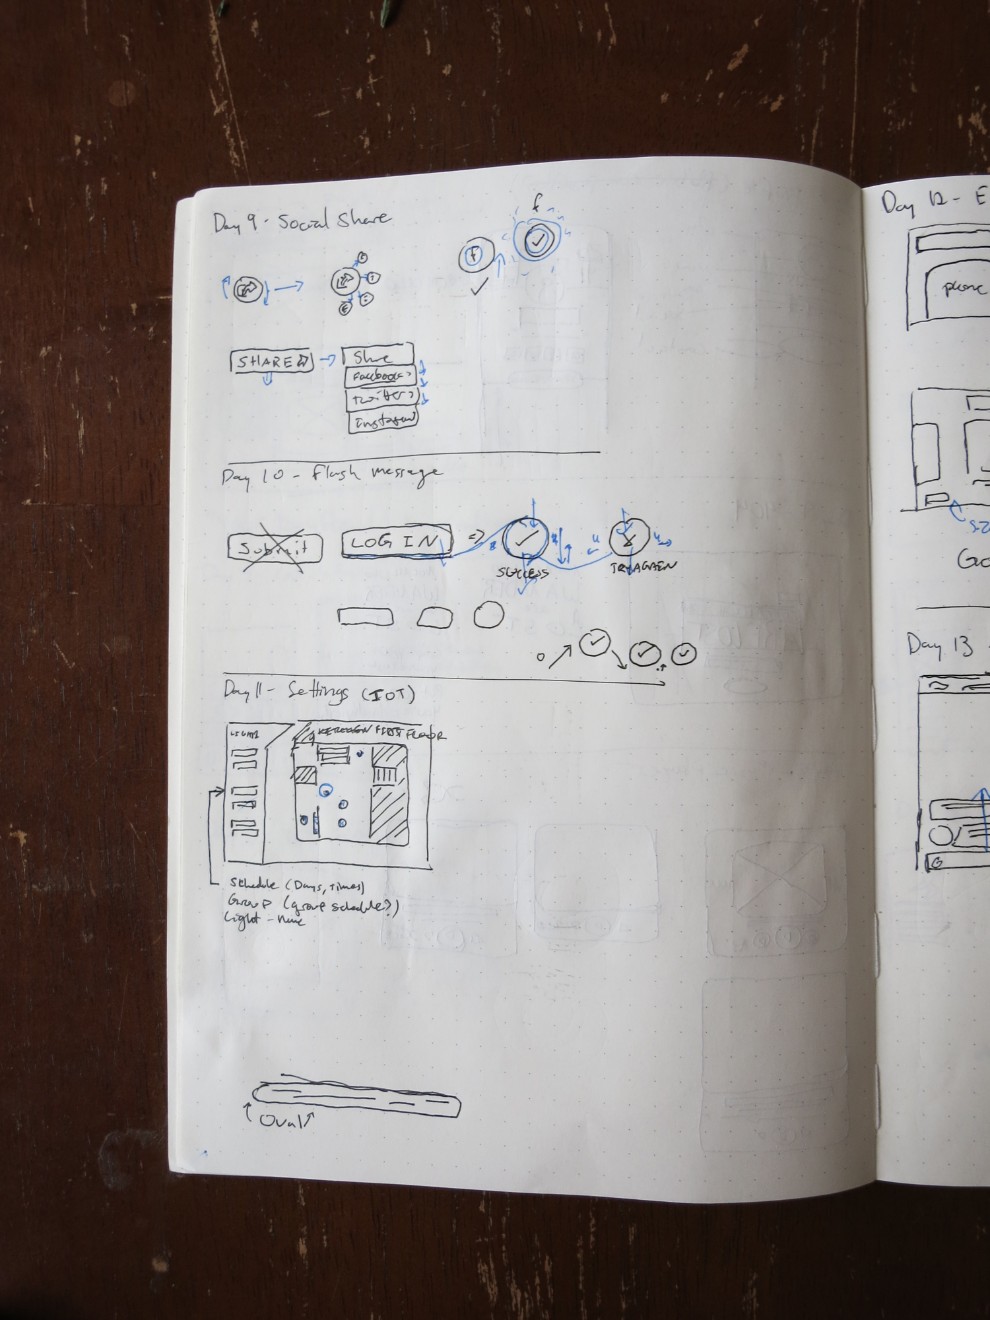 Day 9 - Social Share
f
F
SHARE
Share
Facebook
Twitter
Instagram
Day 10 - Flash message
Submit
LOG IN
SUCCESS
TRY AGAIN
Day 11 - Settings (IOT)
LIGHTS
FIRST FLOOR
Schedule (Days, Times)
Group (group schedule?)
Light - name
Oval
Day 12 - E
phone
Day 13 -